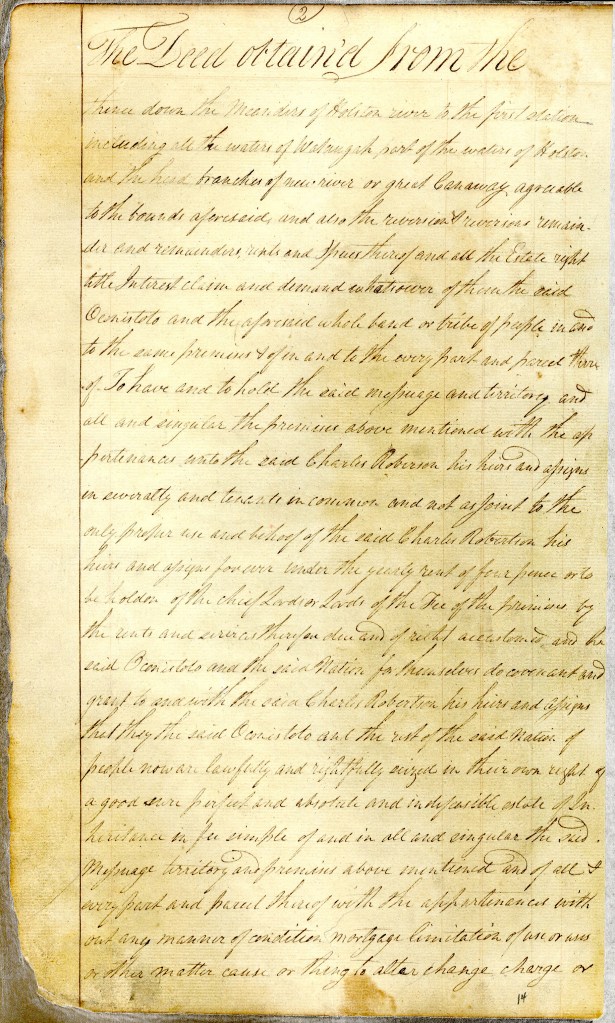 2
The Deed obtain'd from the
thence down the Meanders of Holston river to the first station
including all the waters of Wataugah, part of the waters of Holston
and the head branches of new river or great Canaway, agreeable
to the bounds aforesaid, and also the reversion & reversions remain-
der and remainders, rents and Issues thereof and all the Estate right
title Interest claim and demand whatsoever of them the said
Oconistoto and the aforesaid whole band or tribe of people in and
to the same premises & of in and to the every part and parcel there
of. To have and to hold the said messuage and territory, and
all and singular the premises above mentioned with the ap
pertenances unto the said Charles Roberson his heirs and assigns
in severalty and tenents in common and not as Joint to the
only proper use and behoof of the said Charles Robertson his
heirs and assigns forever under the yearly rent of four pence or to
be holden of the chief Lord or Lords of the Fee of the premises by
the rents and services therefor due and of right accustomed, and the
said Oconistoto and the said Nation for themselves do covenant and
grant to and with the said Charles Robertson his heirs and assigns
that they the said Oconistoto and the rest of the said Nation of
people now are lawfully and rightfully seized in their own right of
a good sure perfect and absolute and indefeasible estate of In
heritance in fee simple of and in all and singular the said
Messuage territory and premises above mentioned and of all &
every part and parcel thereof with the appertenances with
out any manner of condition mortgage limitation of use or uses
or other matter cause or thing to alter change charge or
14